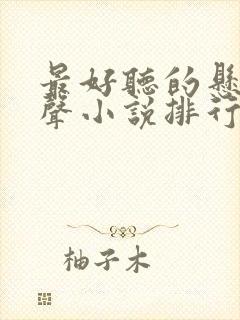 最好聽的懸
聲小說排行
柚子木